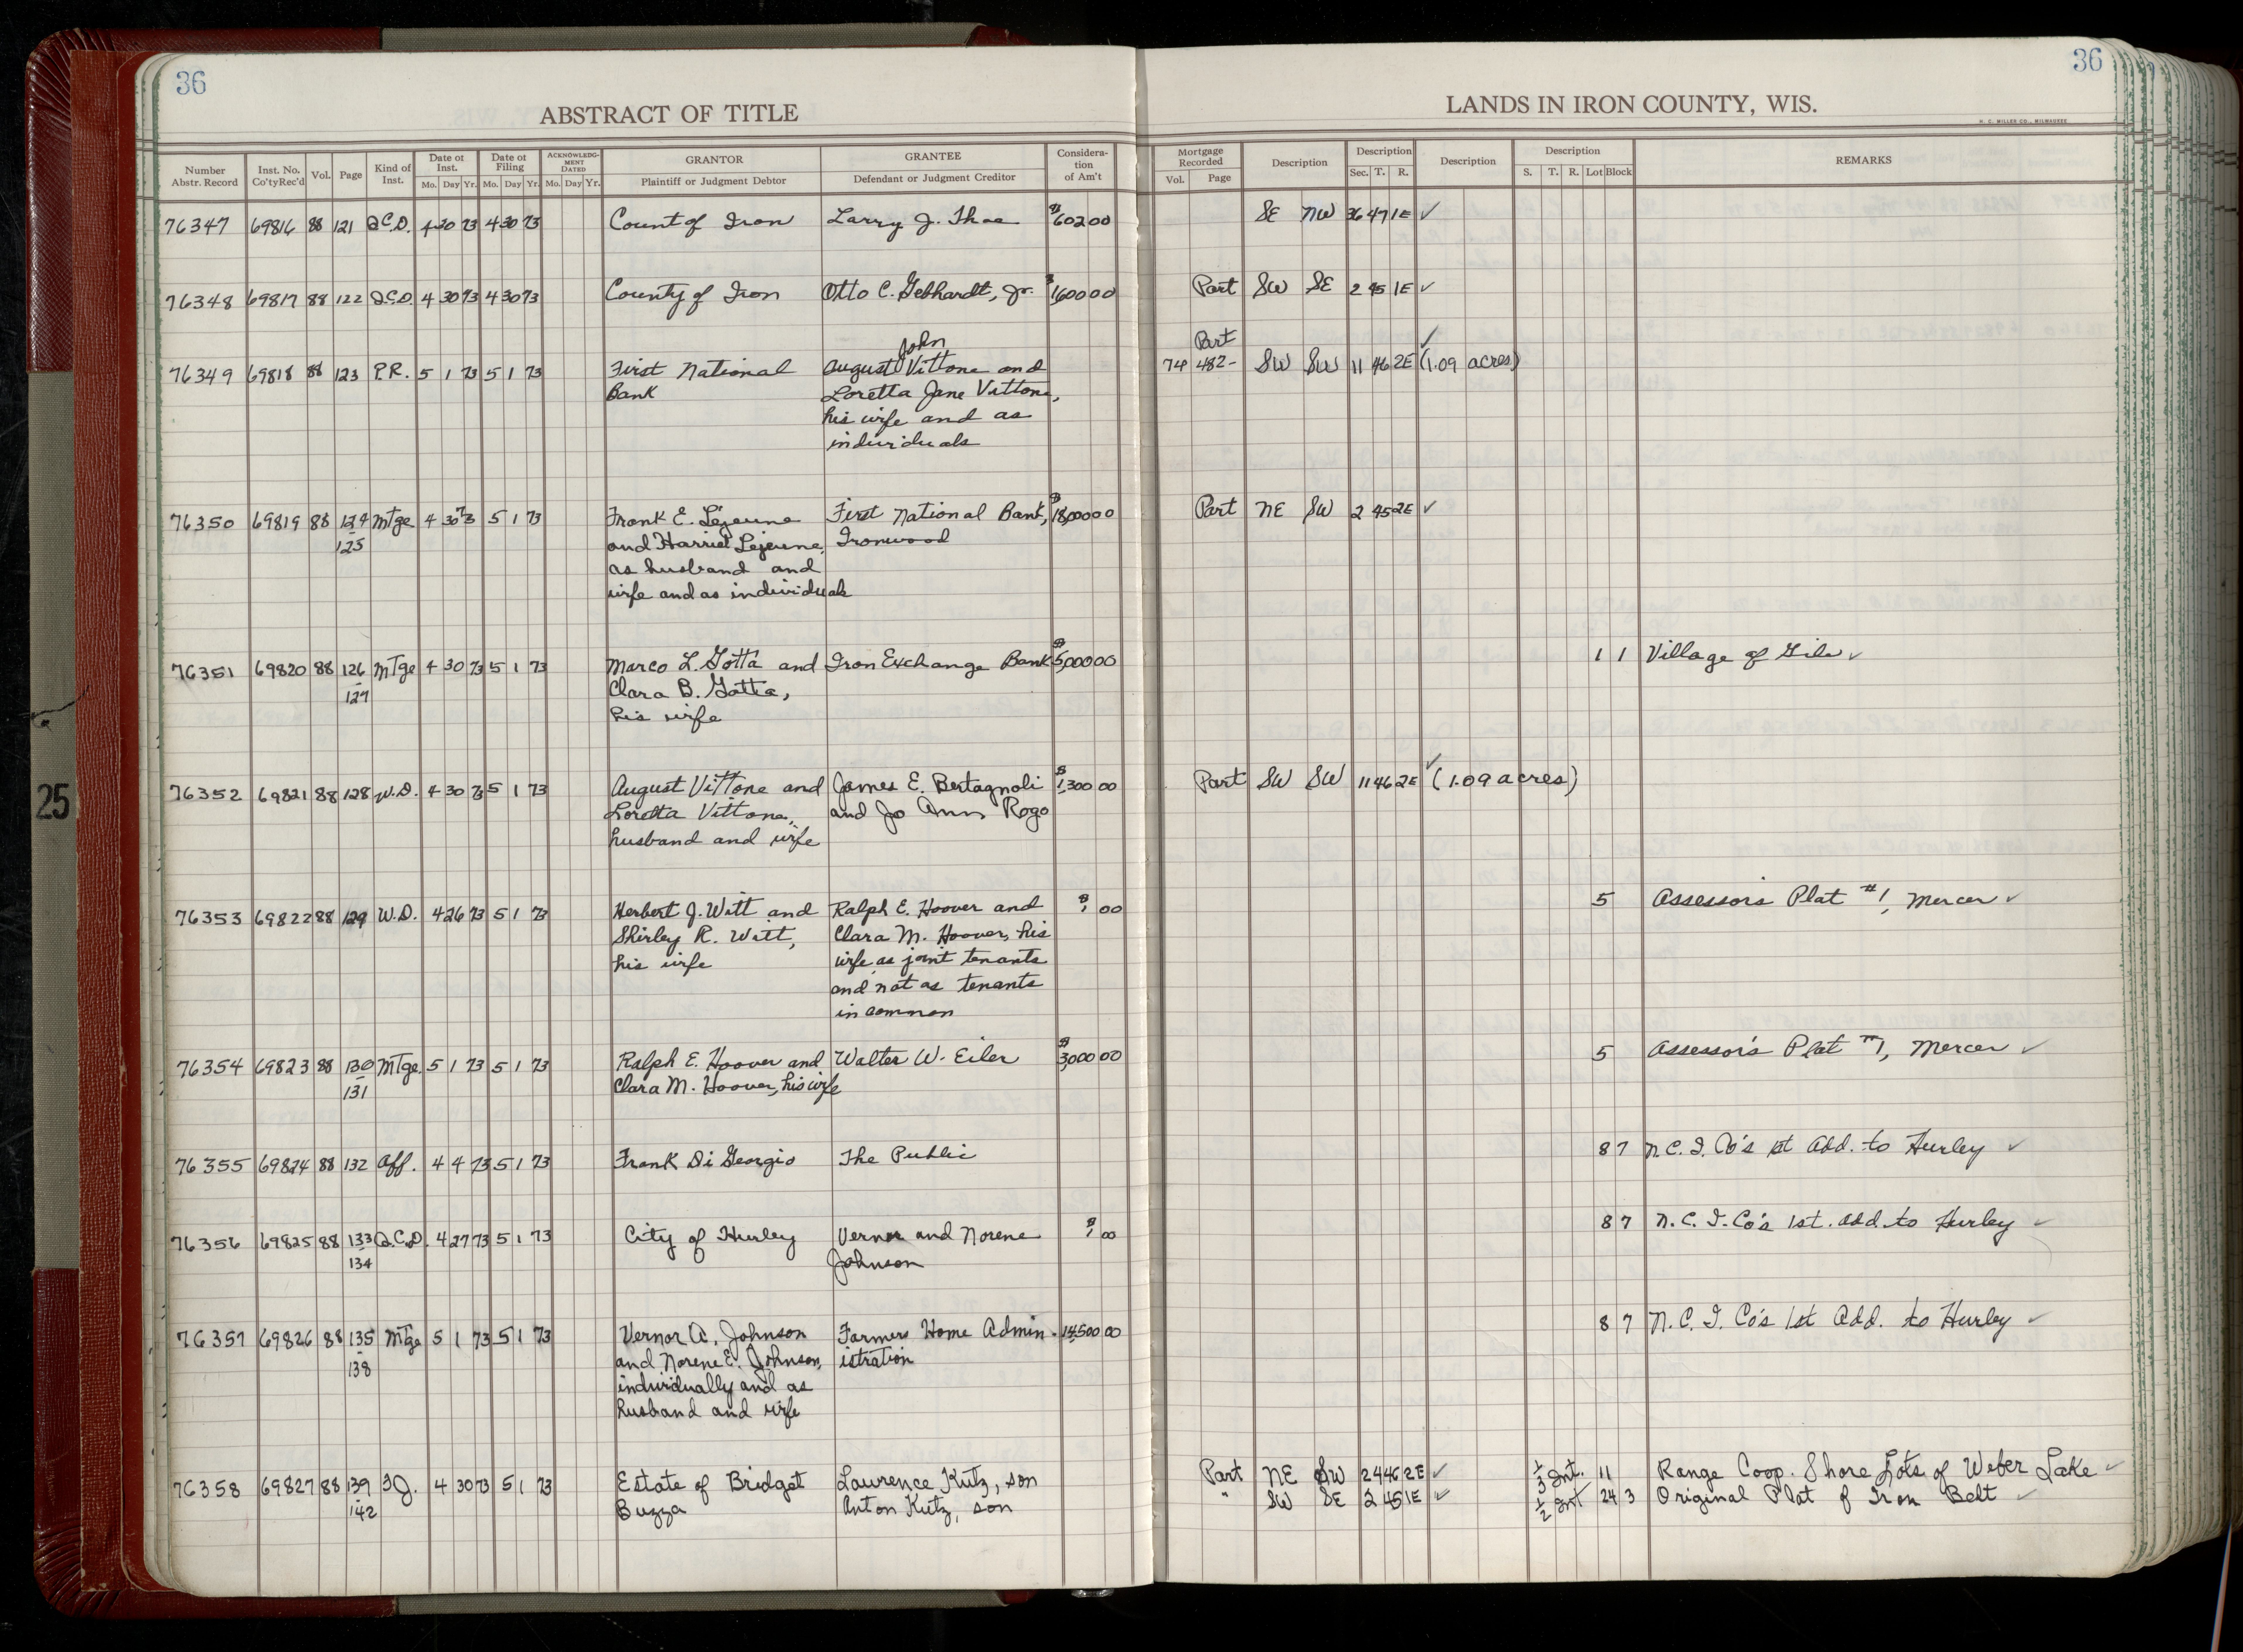 36
36
ABSTRACT OF TITLE
LANDS IN IRON COUNTY, WIS.
H. C. MILLER CO., MILWAUKEE
Number Abstr. Record Inst. No. Co'tyRec'd Vol. Page Kind of Inst. Date of Inst. Mo. Day Yr. Date of Filing Mo. Day Yr. ACKNOWLEDGMENT DATED Mo. Day Yr. GRANTOR Plaintiff or Judgment Debtor GRANTEE Defendant or Judgment Creditor Consideration of Am't Mortgage Recorded Vol. Page Description Description Sec. T. R. Description Description S. T. R. Lot Block REMARKS
76347 69816 88 121 Q.C.D. 4 30 73 4 30 73 Count of Iron Larry J. Thae $602 00 SE NW 36 47 1E ✓
76348 69817 88 122 Q.C.D. 4 30 73 4 30 73 County of Iron Otto C. Gebhardt, Jr. $1,600 00 Part SW SE 2 45 1E ✓
John Part ✓
76349 69818 88 123 P.R. 5 1 73 5 1 73 First National August Vittone and 74 482- SW SW 11 46 2E (1.09 acres)
Bank Loretta Jane Vittone,
his wife and as
individuals
76350 69819 88 124 Mtge 4 30 73 5 1 73 Frank E. Lejeune First National Bank, $18,000 00 Part NE SW 2 45 2E ✓
- 125 and Harriet Lejeune, Ironwood
as husband and
wife and as individuals
76351 69820 88 126 Mtge 4 30 73 5 1 73 Marco L. Gotta and Iron Exchange Bank $5,000 00 1 1 Village of Gile ✓
- 127 Clara B. Gotta,
his wife
76352 69821 88 128 W.D. 4 30 73 5 1 73 August Vittone and James E. Bertagnoli $1,300 00 Part SW SW 11 46 2E ✓ (1.09 acres)
Loretta Vittone, and Jo Ann Rogo
husband and wife
76353 69822 88 129 W.D. 4 26 73 5 1 73 Herbert J. Witt and Ralph E. Hoover and $1 00 5 Assessors Plat #1, Mercer ✓
Shirley R. Witt, Clara M. Hoover, his
his wife wife, as joint tenants
and not as tenants
in common
76354 69823 88 130 Mtge 5 1 73 5 1 73 Ralph E. Hoover and Walter W. Eiler $3,000 00 5 Assessor's Plat #1, Mercer ✓
- 131 Clara M. Hoover, his wife
76355 69824 88 132 Aff. 4 4 73 5 1 73 Frank Di Georgio The Public 8 7 N.C.I. Co's 1st Add. to Hurley ✓
76356 69825 88 133 Q.C.D. 4 27 73 5 1 73 City of Hurley Vernor and Norene $1 00 8 7 N.C.I. Co's 1st. Add. to Hurley ✓
- 134 Johnson
76357 69826 88 135 Mtge 5 1 73 5 1 73 Vernor A. Johnson Farmers Home Admin- 14,500 00 8 7 N.C.I. Co's 1st Add. to Hurley ✓
- 138 and Norene E. Johnson, istration
individually and as
husband and wife
76358 69827 88 139 F.J. 4 30 73 5 1 73 Estate of Bridget Laurence Kutz, son Part NE SW 24 46 2E ✓ 1/3 Int. 11 Range Coop. Shore Lots of Weber Lake ✓
- 142 Buzza Anton Kutz, son " SW SE 2 45 1E ✓ 1/2 Int 24 3 Original Plat of Iron Belt ✓
25